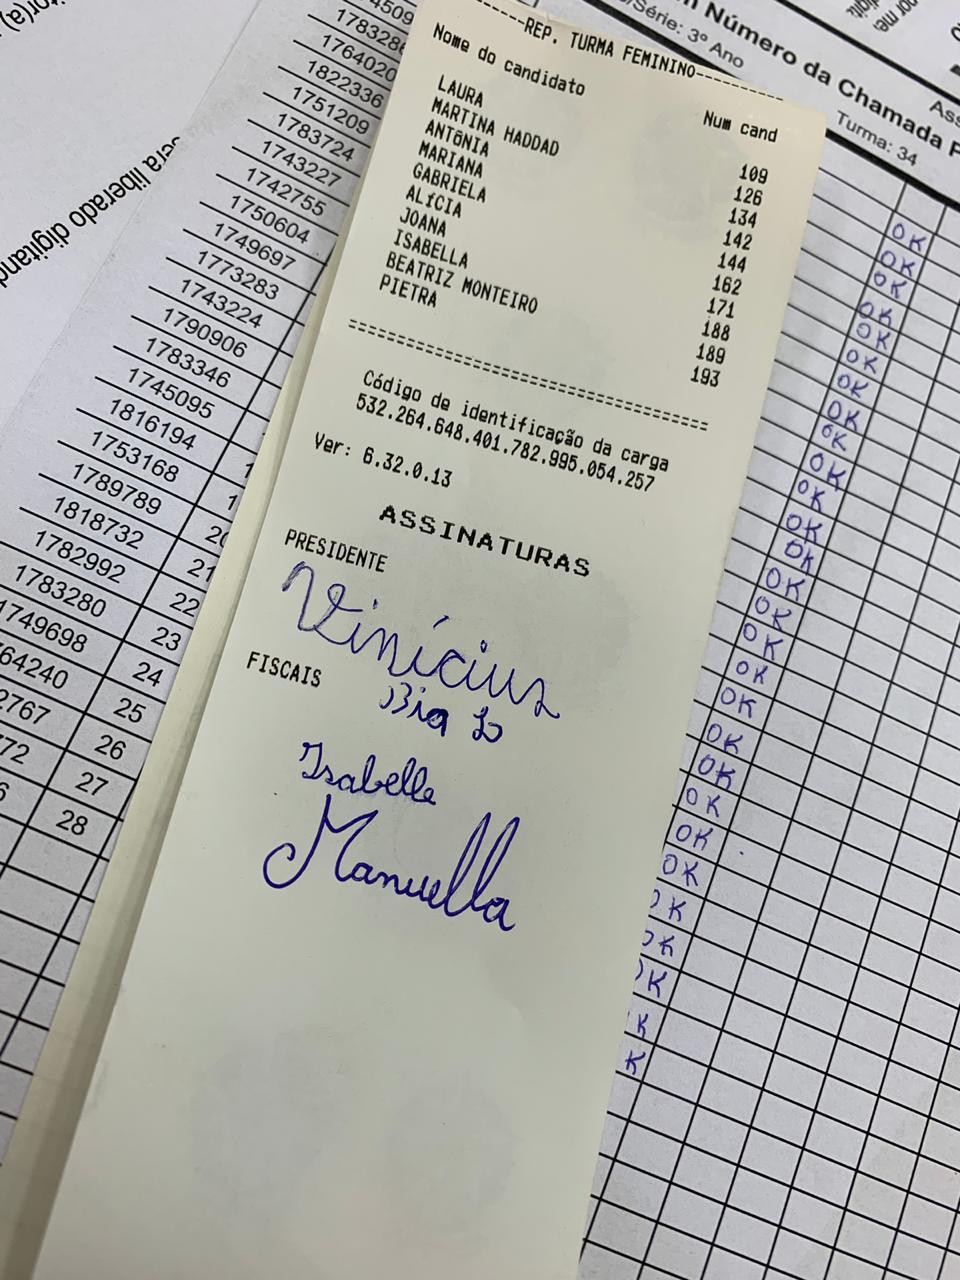 ------REP. TURMA FEMININO------
Nome do candidato Num cand
LAURA 109
MARTINA HADDAD 126
ANTÔNIA 134
MARIANA 142
GABRIELA 144
ALÍCIA 162
JOANA 171
ISABELLA 188
BEATRIZ MONTEIRO 189
PIETRA 193
========================================
Código de identificação da carga
532.264.648.401.782.995.054.257
Ver: 6.32.0.13
ASSINATURAS
PRESIDENTE
Vinícius
FISCAIS
Bia
Isabelle
Manuella
Número da Chamada
Série: 3º Ano
Turma: 34
será liberado
1764020
1822336
1751209
1783724
1743227
1742755
1750604
1749697
1773283
1743224
1790906
1783346
1745095
1816194
1753168
1789789
1818732 21
1782992 22
1783280 23
1749698 24
64240 25
2767 26
72 27
28
OK
OK
OK
OK
OK
OK
OK
OK
OK
OK
OK
OK
OK
OK
OK
OK
OK
OK
OK
OK
OK
OK
OK
OK
OK
OK
K
K